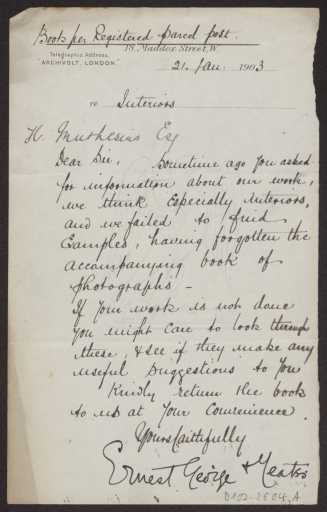 Book per Registered parcel post.
18. Maddox Street, W.
Telegraphic Address,
"ARCHIVOLT, LONDON."
21. Jan. 1903
re Interiors
H. Muthesius Esq
Dear Sir, Sometime ago you asked
for information about our work,
we think Especially interiors,
and we failed to find
Examples, having forgotten the
accompanying book of
photographs –
If your work is not done
you might care to look through
these, & see if they make any
useful suggestions to you
Kindly return the book
to us at your Convenience.
Yours faithfully
Ernest George & Yeates